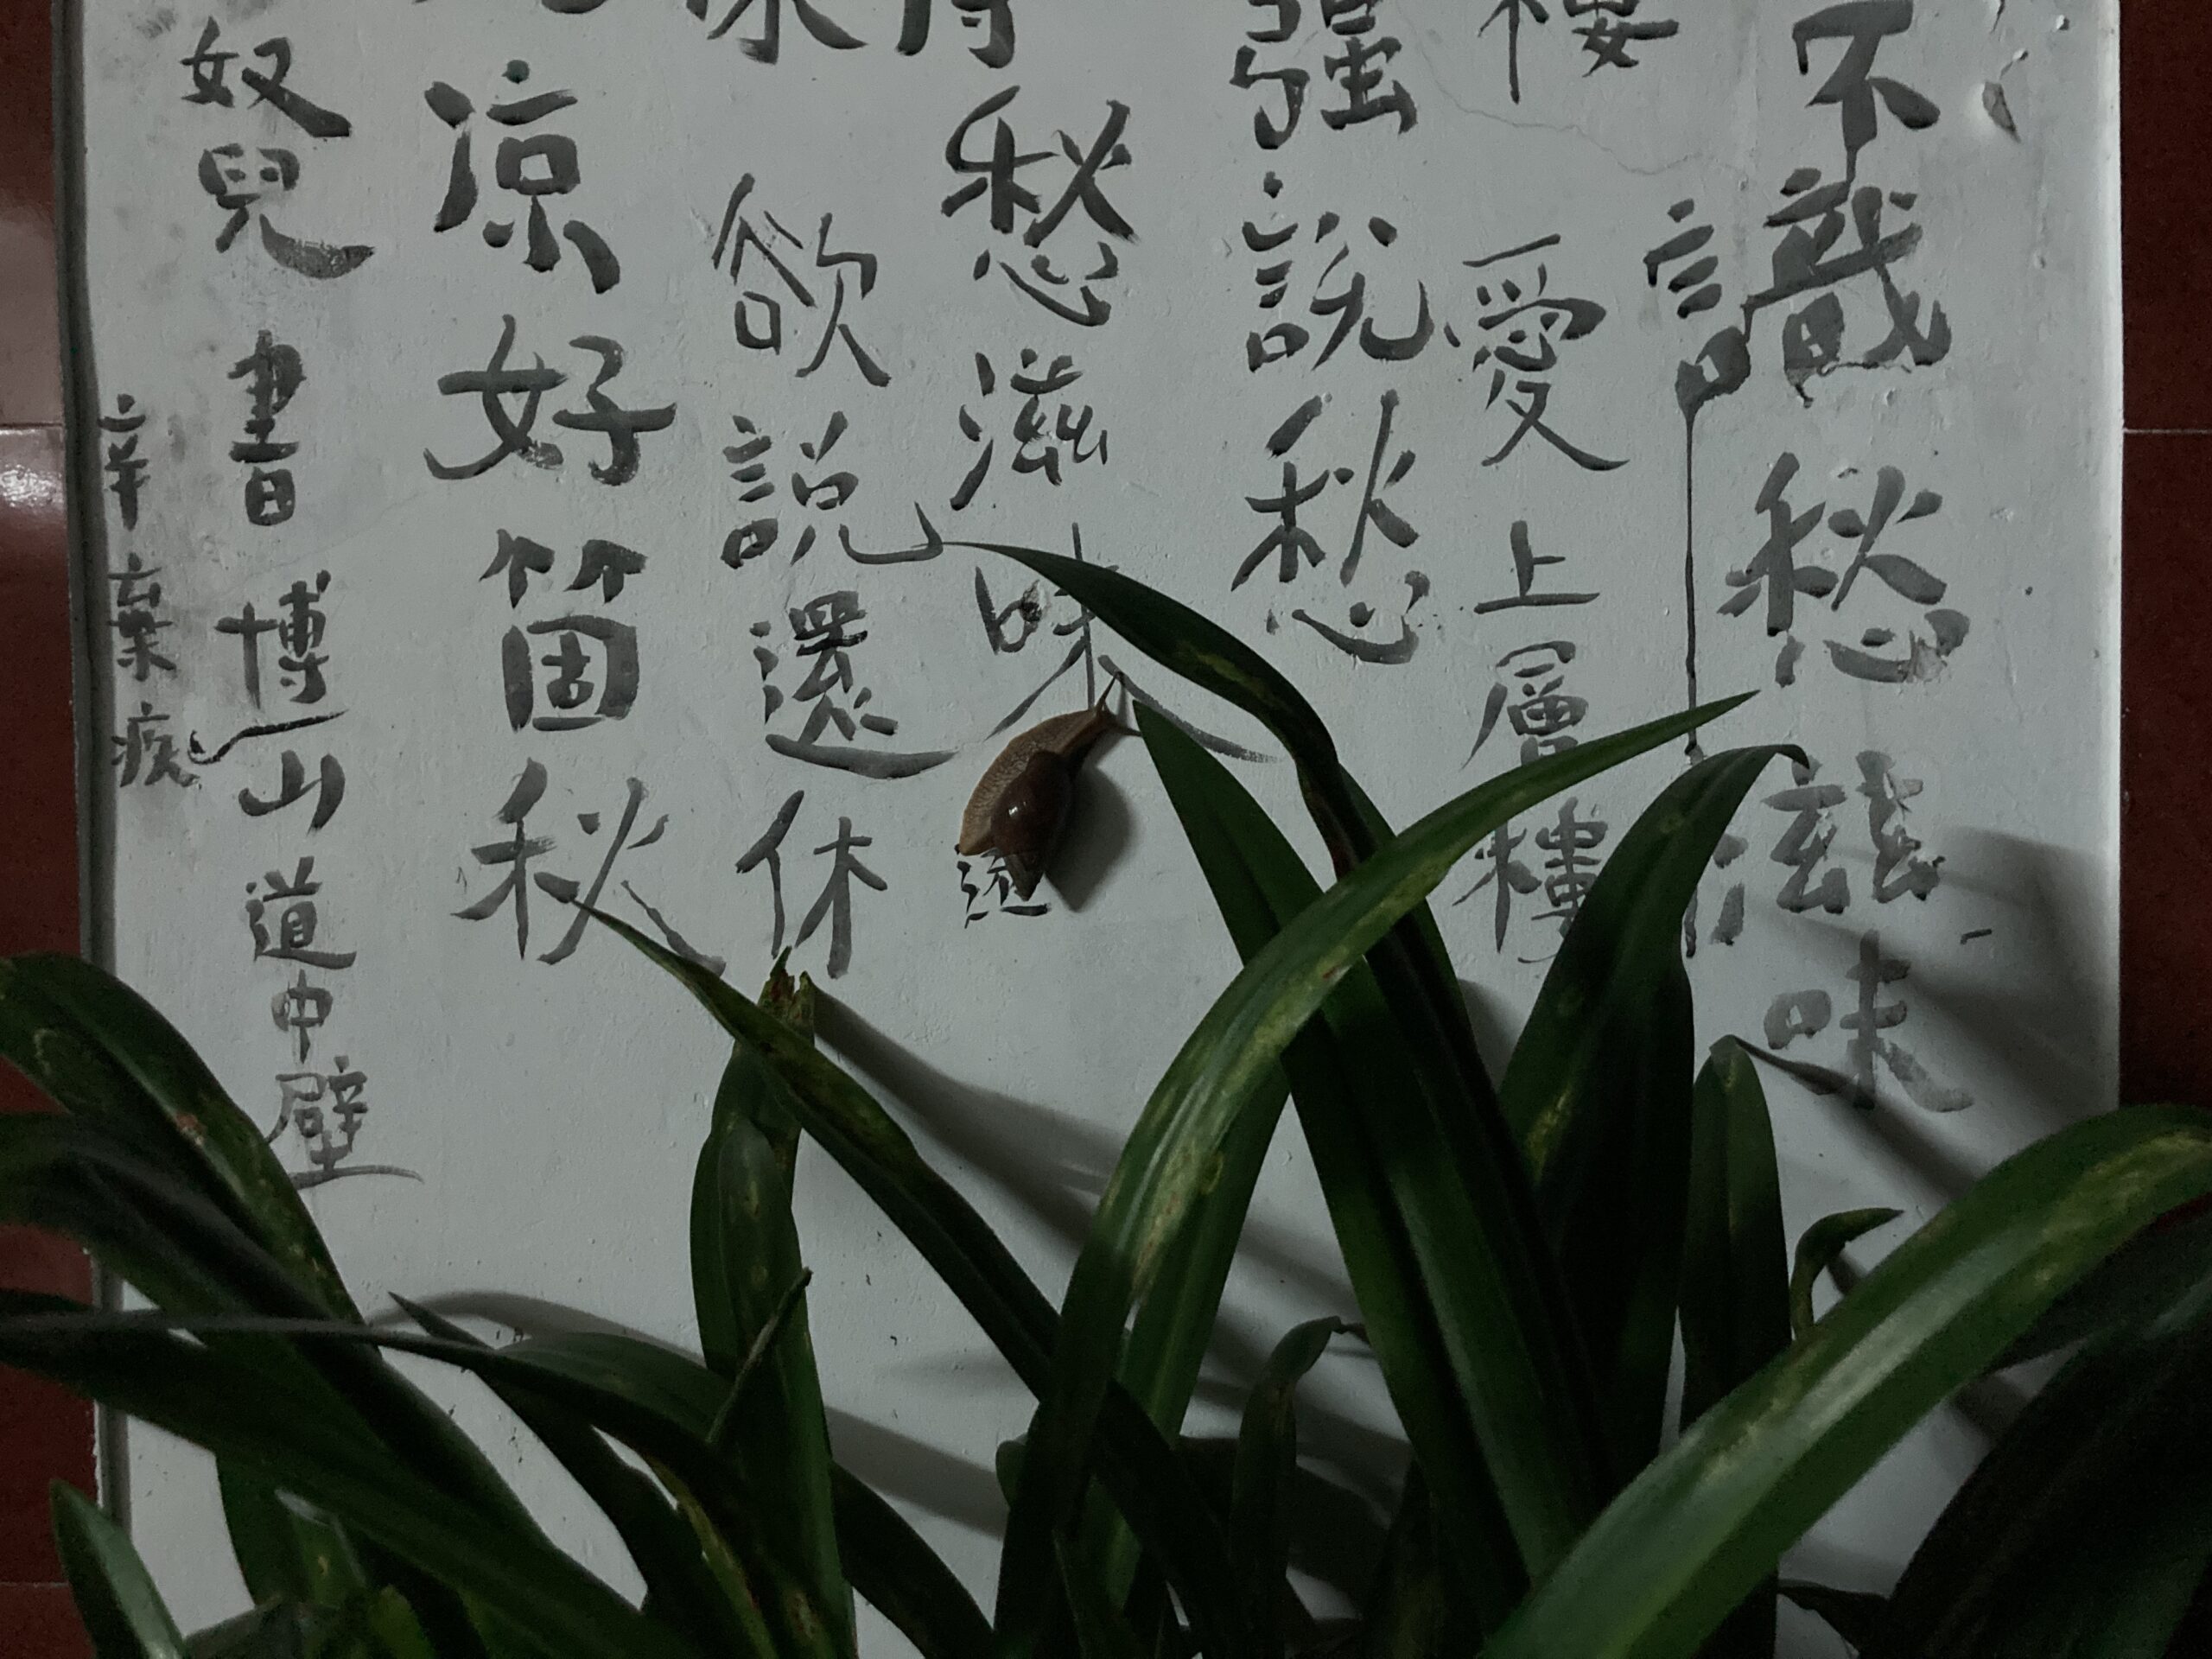 不識愁滋味
樓愛上層樓
強說愁
愁滋味
欲說還休
涼好箇秋
奴兒書博山道中壁
辛棄疾